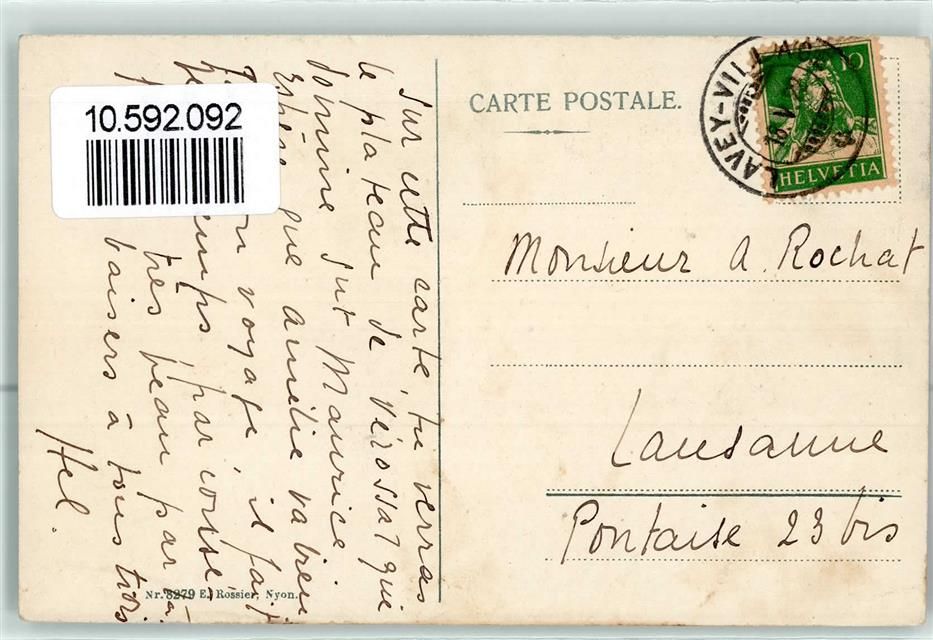 10.592.092
CARTE POSTALE.
LAVEY-VIL
10
HELVETIA
Monsieur A. Rochat
Lausanne
Pontaise 23 bis
Sur cette carte, tu verras
le plateau de Vérossaz qui
domine sut Maurice.
Espère que amélie va bien
voyage, il fait
temps par
très beau par
baisers à tous trois
Hel.
Nr. 3279 E. Rossier, Nyon.